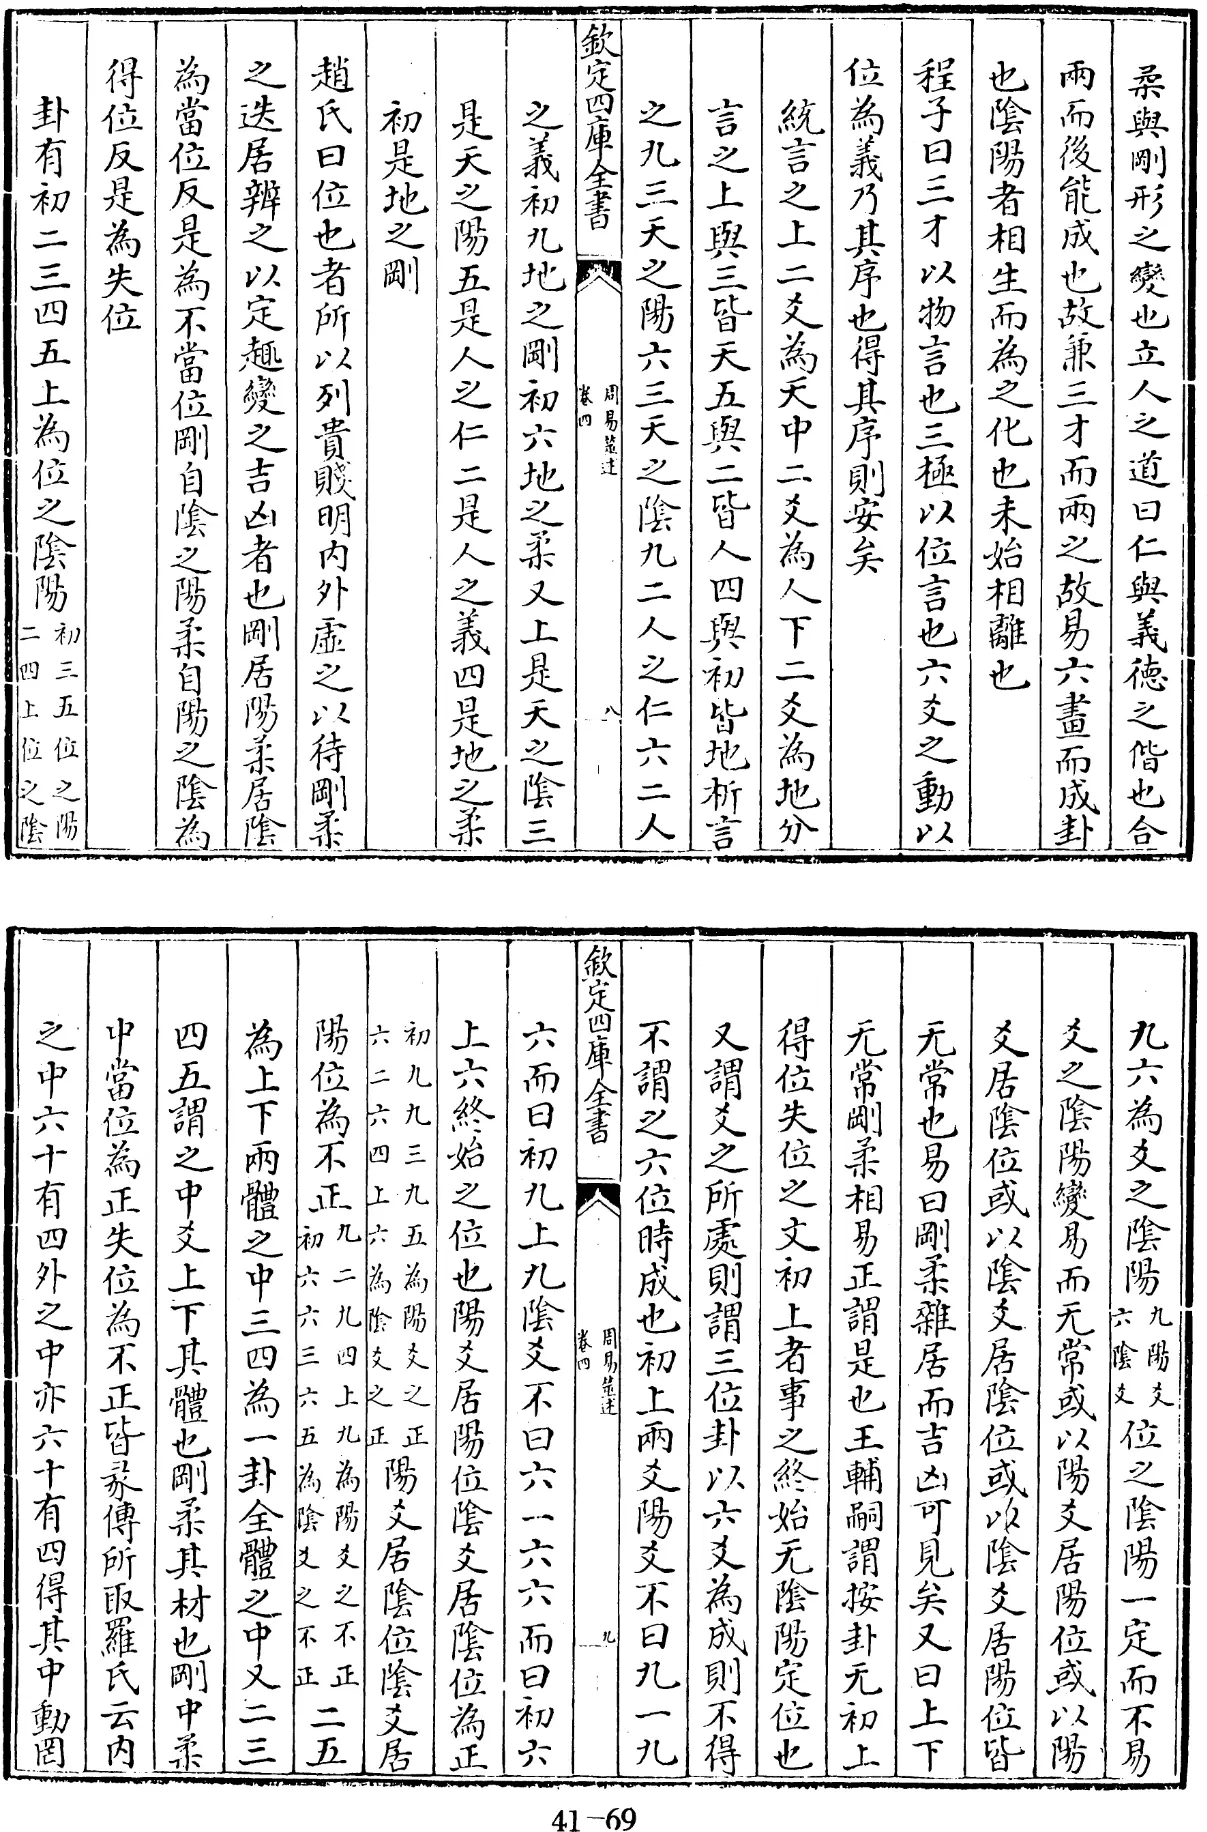 柔與剛形之變也立人之道曰仁與義德之偕也合
兩而後能成也故兼三才而兩之故易六畫而成卦
也陰陽者相生而為之化也未始相離也
程子曰三才以物言也三極以位言也六爻之動以
位為義乃其序也得其序則安矣
統言之上二爻為天中二爻為人下二爻為地分
言之上與三皆天五與二皆人四與初皆地析言
之九三天之陽六三天之陰九二人之仁六二人
欽定四庫全書
周易筮述
卷四
八
之義初九地之剛初六地之柔又上是天之陰三
是天之陽五是人之仁二是人之義四是地之柔
初是地之剛
趙氏曰位也者所以列貴賤明内外虛之以待剛柔
之迭居辨之以定趣變之吉凶者也剛居陽柔居陰
為當位反是為不當位剛自陰之陽柔自陽之陰為
得位反是為失位
卦有初二三四五上為位之陰陽初三五位之陽二四上位之陰
九六為爻之陰陽九陽爻六陰爻位之陰陽一定而不易
爻之陰陽變易而无常或以陽爻居陽位或以陽
爻居陰位或以陰爻居陰位或以陰爻居陽位皆
无常也易曰剛柔雜居而吉凶可見矣又曰上下
无常剛柔相易正謂是也王輔嗣謂按卦无初上
得位失位之文初上者事之終始无陰陽定位也
又謂爻之所處則謂三位卦以六爻為成則不得
不謂之六位時成也初上兩爻陽爻不曰九一九
欽定四庫全書
周易筮述
卷四
九
六而曰初九上九陰爻不曰六一六六而曰初六
上六終始之位也陽爻居陽位陰爻居陰位為正
初九九三九五為陽爻之正六二六四上六為陰爻之正陽爻居陰位陰爻居
陽位為不正九二九四上九為陽爻之不正初六六三六五為陰爻之不正二五
為上下兩體之中三四為一卦全體之中又二三
四五謂之中爻上下其體也剛柔其材也剛中柔
中當位為正失位為不正皆彖傳所取羅氏云内
之中六十有四外之中亦六十有四得其中動罔
41-69